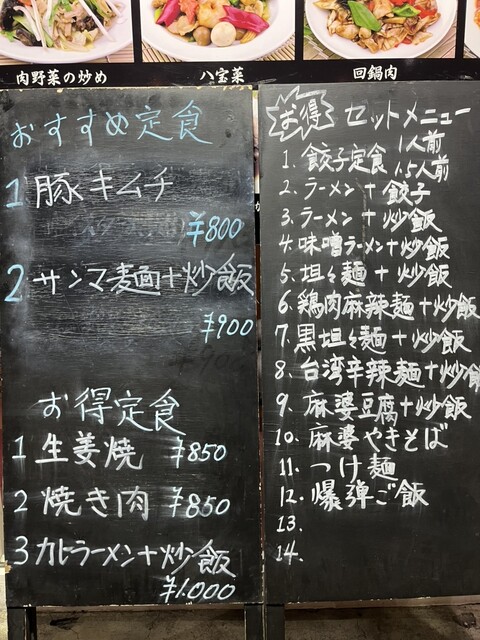 肉野菜の炒め
八宝菜
回鍋肉
おすすめ定食
1 豚キムチ
¥800
2 サンマ麺+炒飯
¥900
お得定食
1 生姜焼 ¥850
2 焼き肉 ¥850
3 カレーラーメン+炒飯
¥1.000
お得 セットメニュー
1. 餃子定食 1人前 1.5人前
2. ラーメン + 餃子
3. ラーメン + 炒飯
4. 味噌ラーメン+炒飯
5. 坦々麺 + 炒飯
6. 鶏肉麻辣麺+炒飯
7. 黒坦々麺+炒飯
8. 台湾辛辣麺+炒飯
9. 麻婆豆腐+炒飯
10. 麻婆やきそば
11. つけ麺
12. 爆弾ご飯
13.
14.